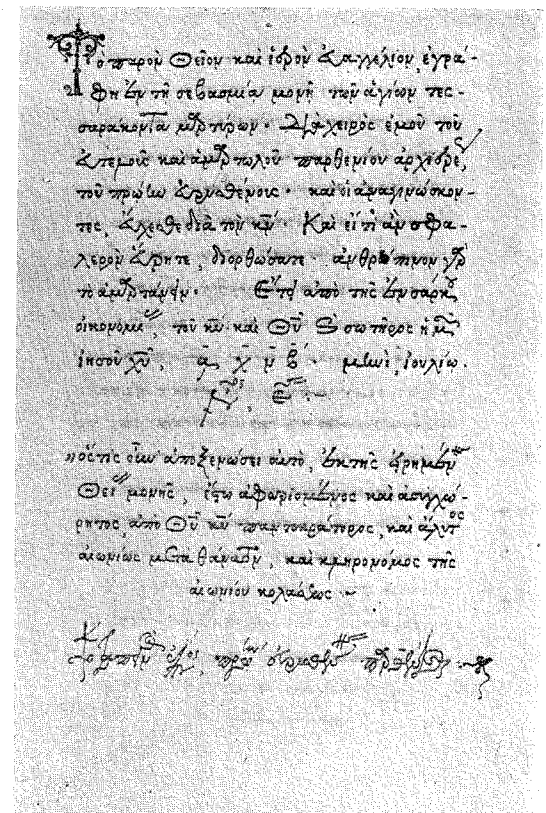 Τὸ παρὸν θεῖον καὶ ἱερὸν εὐαγγέλιον, ἐγρά-
φη ἐν τῇ σεβασμίᾳ μονῇ τῶν ἁγίων τεσ-
σαράκοντα μαρτύρων· διὰ χειρὸς ἐμοῦ τοῦ
εὐτελοῦς καὶ ἁμαρτωλοῦ παρθενίου ἀρχιερέως
τοῦ πρώην · καὶ οἱ ἀναγινώσκον-
τες, εὔχεσθε διὰ τὸν κν̄· Καὶ εἴ τι ἂν σφα-
λερὸν εὕρητε, διορθώσατε· ἀνθρώπινον γὰρ
τὸ ἁμαρτάνειν· Ἔτει ἀπὸ τῆς ἐνσάρκου
οἰκονομίας, τοῦ κῡ καὶ Θῡ καὶ σωτῆρος ἡμῶν
ἰησοῦ χῡ, α χ ν β· μηνὶ, ἰουλίῳ.
ὅστις οὖν ἀποξενώσει αὐτὸ, ἐκ τῆς εἰρημένης
Θείας μονῆς, ἔστω ἀφωρισμένος καὶ ἀσυγχώ-
ρητος, ἀπὸ Θῡ κῡ παντοκράτορος, καὶ ἄλυτος
αἰωνίως μετὰ θάνατον, καὶ κληρονόμος τῆς
αἰωνίου κολάσεως ~